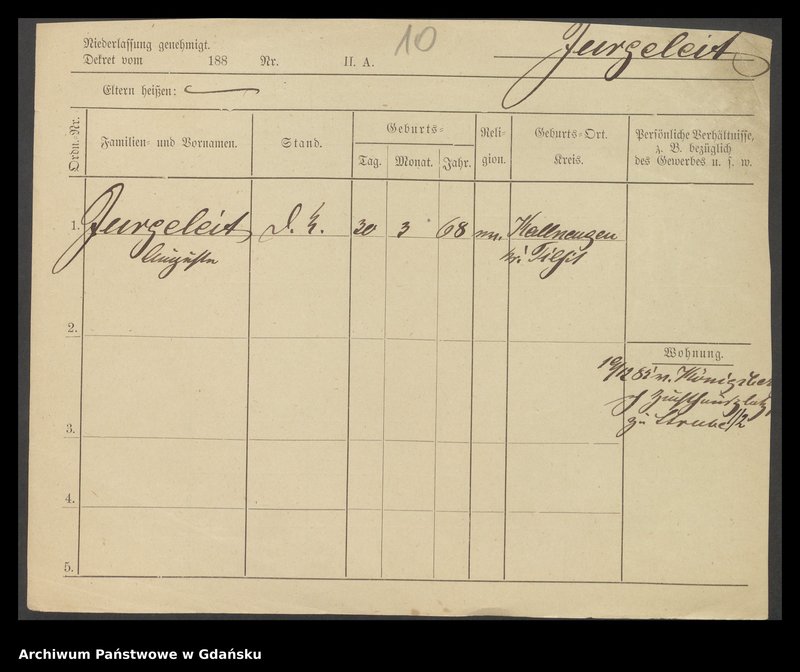 Niederlassung genehmigt.
Dekret vom 188 Nr. II. A.
10
Jurgeleit
Eltern heißen:
Ordn.-Nr.
Familien- und Vornamen.
Stand.
Geburts-
Tag. Monat. Jahr.
Reli-
gion.
Geburts-Ort.
Kreis.
Persönliche Verhältnisse,
z. B. bezüglich
des Gewerbes u. s. w.
1. Jurgeleit 30 3 68
Auguste Kr. Tilsit
2.
Wohnung.
v.
zu
3.
4.
5.
Archiwum Państwowe w Gdańsku